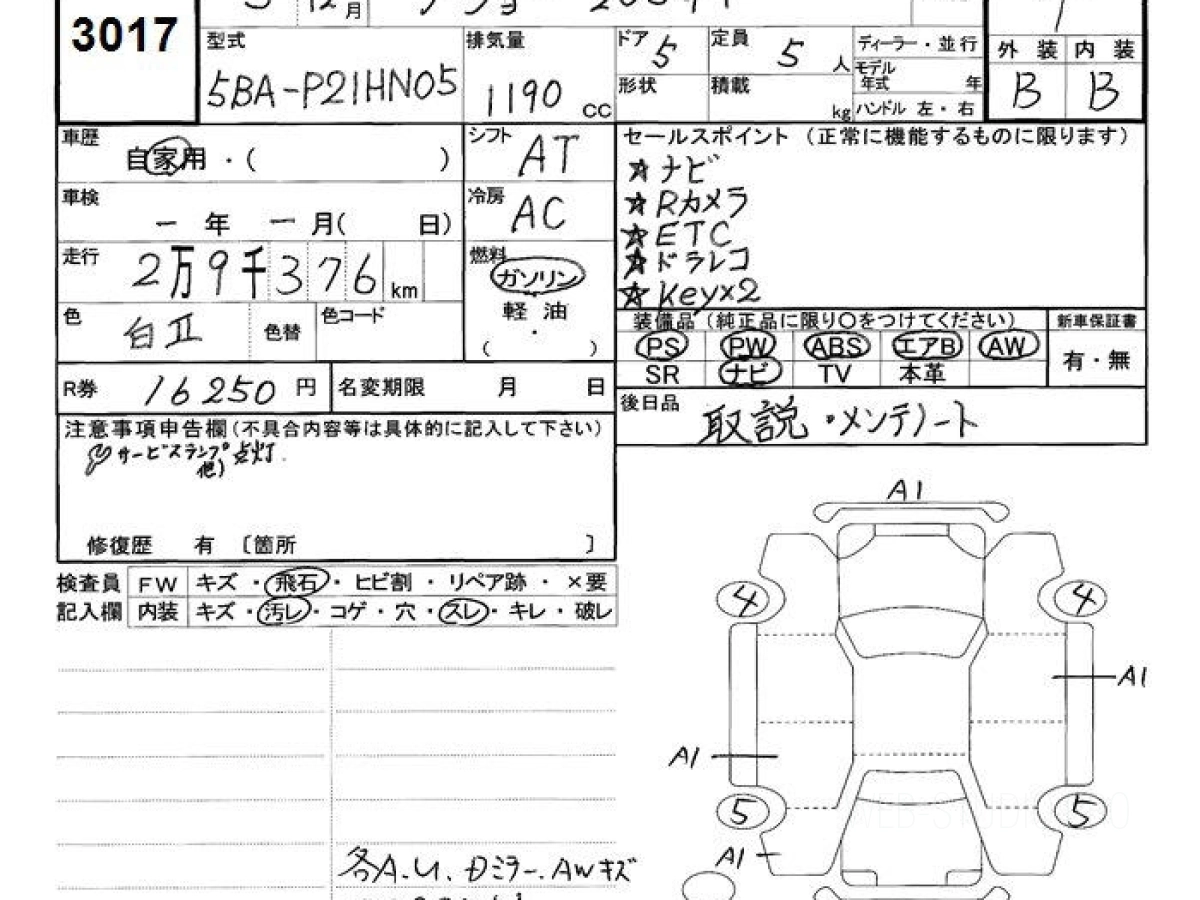 3017
月
型式
5BA-P21HN05
排気量
1190 cc
ドア 5
定員 5 人
ディーラー・並行
モデル年式 年
形状
積載 kg
ハンドル 左・右
外装 内装
B B
車歴
自家用・( )
シフト
AT
車検
一 年 一 月( 日)
冷房
AC
走行
2万9千376 km
燃料
ガソリン
軽油
・
( )
色
白Ⅱ
色替
色コード
R券 16250 円
名変期限 月 日
セールスポイント (正常に機能するものに限ります)
☆ナビ
☆Rカメラ
☆ETC
☆ドラレコ
☆Key×2
装備品 (純正品に限り〇をつけてください)
新車保証書
PS PW ABS エアB AW
有・無
SR ナビ TV 本革
後日品
取説・メンテノート
注意事項申告欄(不具合内容等は具体的に記入して下さい)
サービスランプ点灯
他)
修復歴 有 〔箇所 〕
検査員 FW キズ・飛石・ヒビ割・リペア跡・×要
記入欄 内装 キズ・汚レ・コゲ・穴・スレ・キレ・破レ
A1
4 4
A1
A1
5 5
A1
各A.U.Dミラー.AWキズ